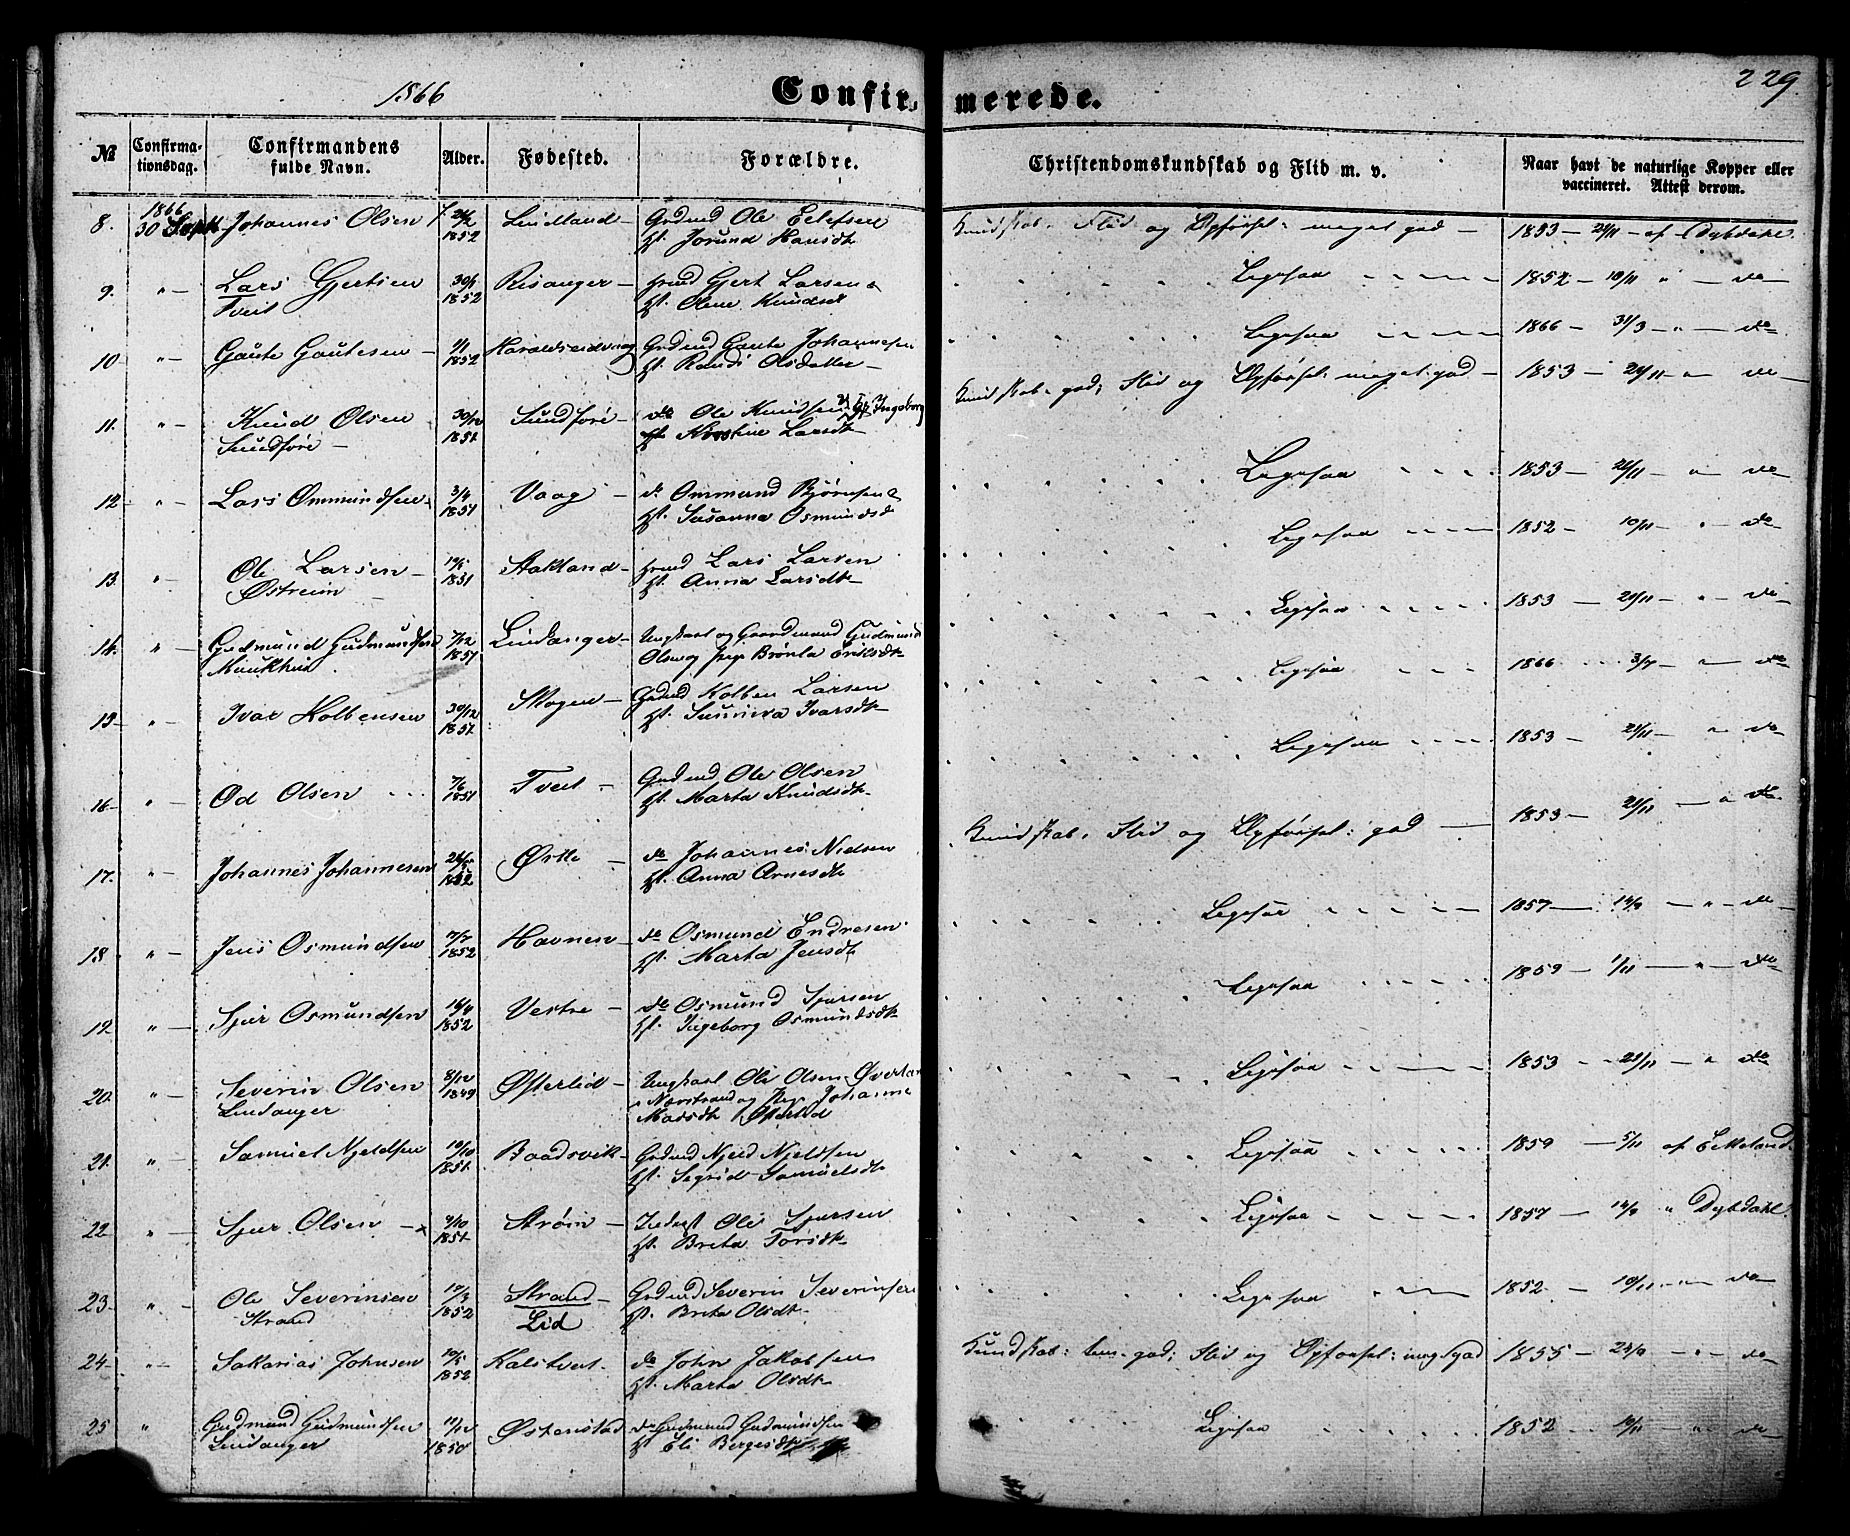 1866 Confirmerede. 229.
№ Confirmationsdag. Confirmandens fulde Navn. Alder. Fødested. Forældre. Christendomskundskab og Flid m. v. Naar havt de naturlige Kopper eller vaccineret. Attest derom.
8. 1866 30 Sept. Johannes Olsen 1852 Lindland Grdmd Ole Eelefsen Kundskab, Flid og Opførsel meget god — 1853 — 21/11 — af Dybdahl.
H. Jorund Hansdt.
9. " — Lars Gjertsen 1852 Risanger — Hmd Gjert Larsen & Ligesaa 1852 — 10/11 " — do —
Tveit H. Olene Knudsdt
10 " — Gaute Gautesen — 1/1 1852 Haraldseidvaag Grdmd Gaute Johannesen Ligesaa 1866 — 31/3 — " — do
H. Randi Olsdatter —
11. " — Knud Olsen 30/10 1851 Sundføre — do Ole Knudsen Ingeborg Kundskab god; Flid og Opførsel meget god — 1853 — 21/11 — do —
Sundføre — Kirstine Larsdt
12 " — Lars Ommundsen 3/4 1851 Vaag — do Ommund Bjørnsen & Ligesaa 1853 — 21/11 — " — do —
H. Susanna Osmundsd
13. " — Ole Larsen — 10/5 1851 Stakland — Hmd Lars Larsen Ligesaa 1852 — 10/11 " — do —
Østreim H. Anna Larsdt
14. " — Gudmund Gudmundsen 7/12 1851 Lindanger — Ungkarl og Gaardmand Gudmund Ligesaa 1853 — 21/11 — " — do —
Munkhus Olsen og pige Brønla Eriksdt
15 " — Ivar Kolbensen 30/12 1851 Skogen — Grdmd Kolben Larsen Ligesaa 1866 3/7 — " — do
H. Sunniva Ivarsdt
16 — " — Od Olsen 7/6 1851 Tveit — Grdmd Ole Olsen Ligesaa 1853 — 21/11 " — do —
H. Marta Knudsdt
17. " — Johannes Johannesen 1852 Ørke — do Johannes Nielsen Kundskab, Flid og Opførsel: god — 1853 — 21/11 — " do —
H. Anna Arnesdt
18 " — Jens Osmundsen 7/7 1852 Havnen — do Osmund Endresen Ligesaa 1857 — 14/9 — " — do —
H. Marta Jensdt
19. " — Sjur Osmundsen 16/4 1852 Vestre — do Osmund Sjursen Ligesaa 1859 — 1/11 — " — do
H. Ingeborg Osmundsdt
20. " — Severin Olsen 8/12 1849 Østerlid — Ungkarl Ole Olsen Øverland Ligesaa 1853 — 21/11 — " do
Lindanger Nærstrand og Pige Johanne
Madsdt Østerlid
21. " — Samuel Njeldsen 10/10 1851 Baadsvik — Grdmd Njeld Njeldsen Ligesaa 1859 — 5/11 af Eekeland.
H. Segrid Samuelsdt
22 " — Sjur Olsen — x 9/10 1851 Strøm — Inderst Ole Sjursen Ligesaa 1857 — 14/9 " Dybdahl.
H. Brita Torsdt
23 — " — Ole Severinsen 10/3 1852 Strand — Grdmd Severin Severinsen Ligesaa 1852 — 10/11 — " — do —
Strand Lid H. Brita Olsdt
24 — " — Sakarias Johnsen 10/5 1852 Kalstveit — do John Jakobsen Kundskab: tem. god; Flid og Opførsel: meg. god 1855 — 24/9 — " — do —
H. Marta Olsdt
25 " Gudmund Gudmundsen 11/12 1850 Østenstad do Gudmund Gudmundsen Ligesaa 1852 10/11 " do —
Lindanger H. Eli Bergesdt